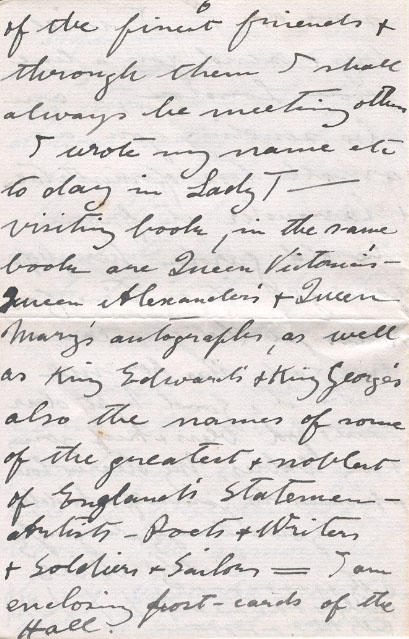 of the finest friends &
through them I shall
always be meeting others
I wrote my name etc
to day in Lady T—
visiting book, in the same
book are Queen Victoria's –
Queen Alexander's & Queen
Mary's autographs, as well
as King Edward's & King George's
also the names of some
of the greatest & noblest
of England's Statemen –
Artists – Poets & Writers
& Soldiers & Sailors = I am
enclosing post-cards of the
Hall.